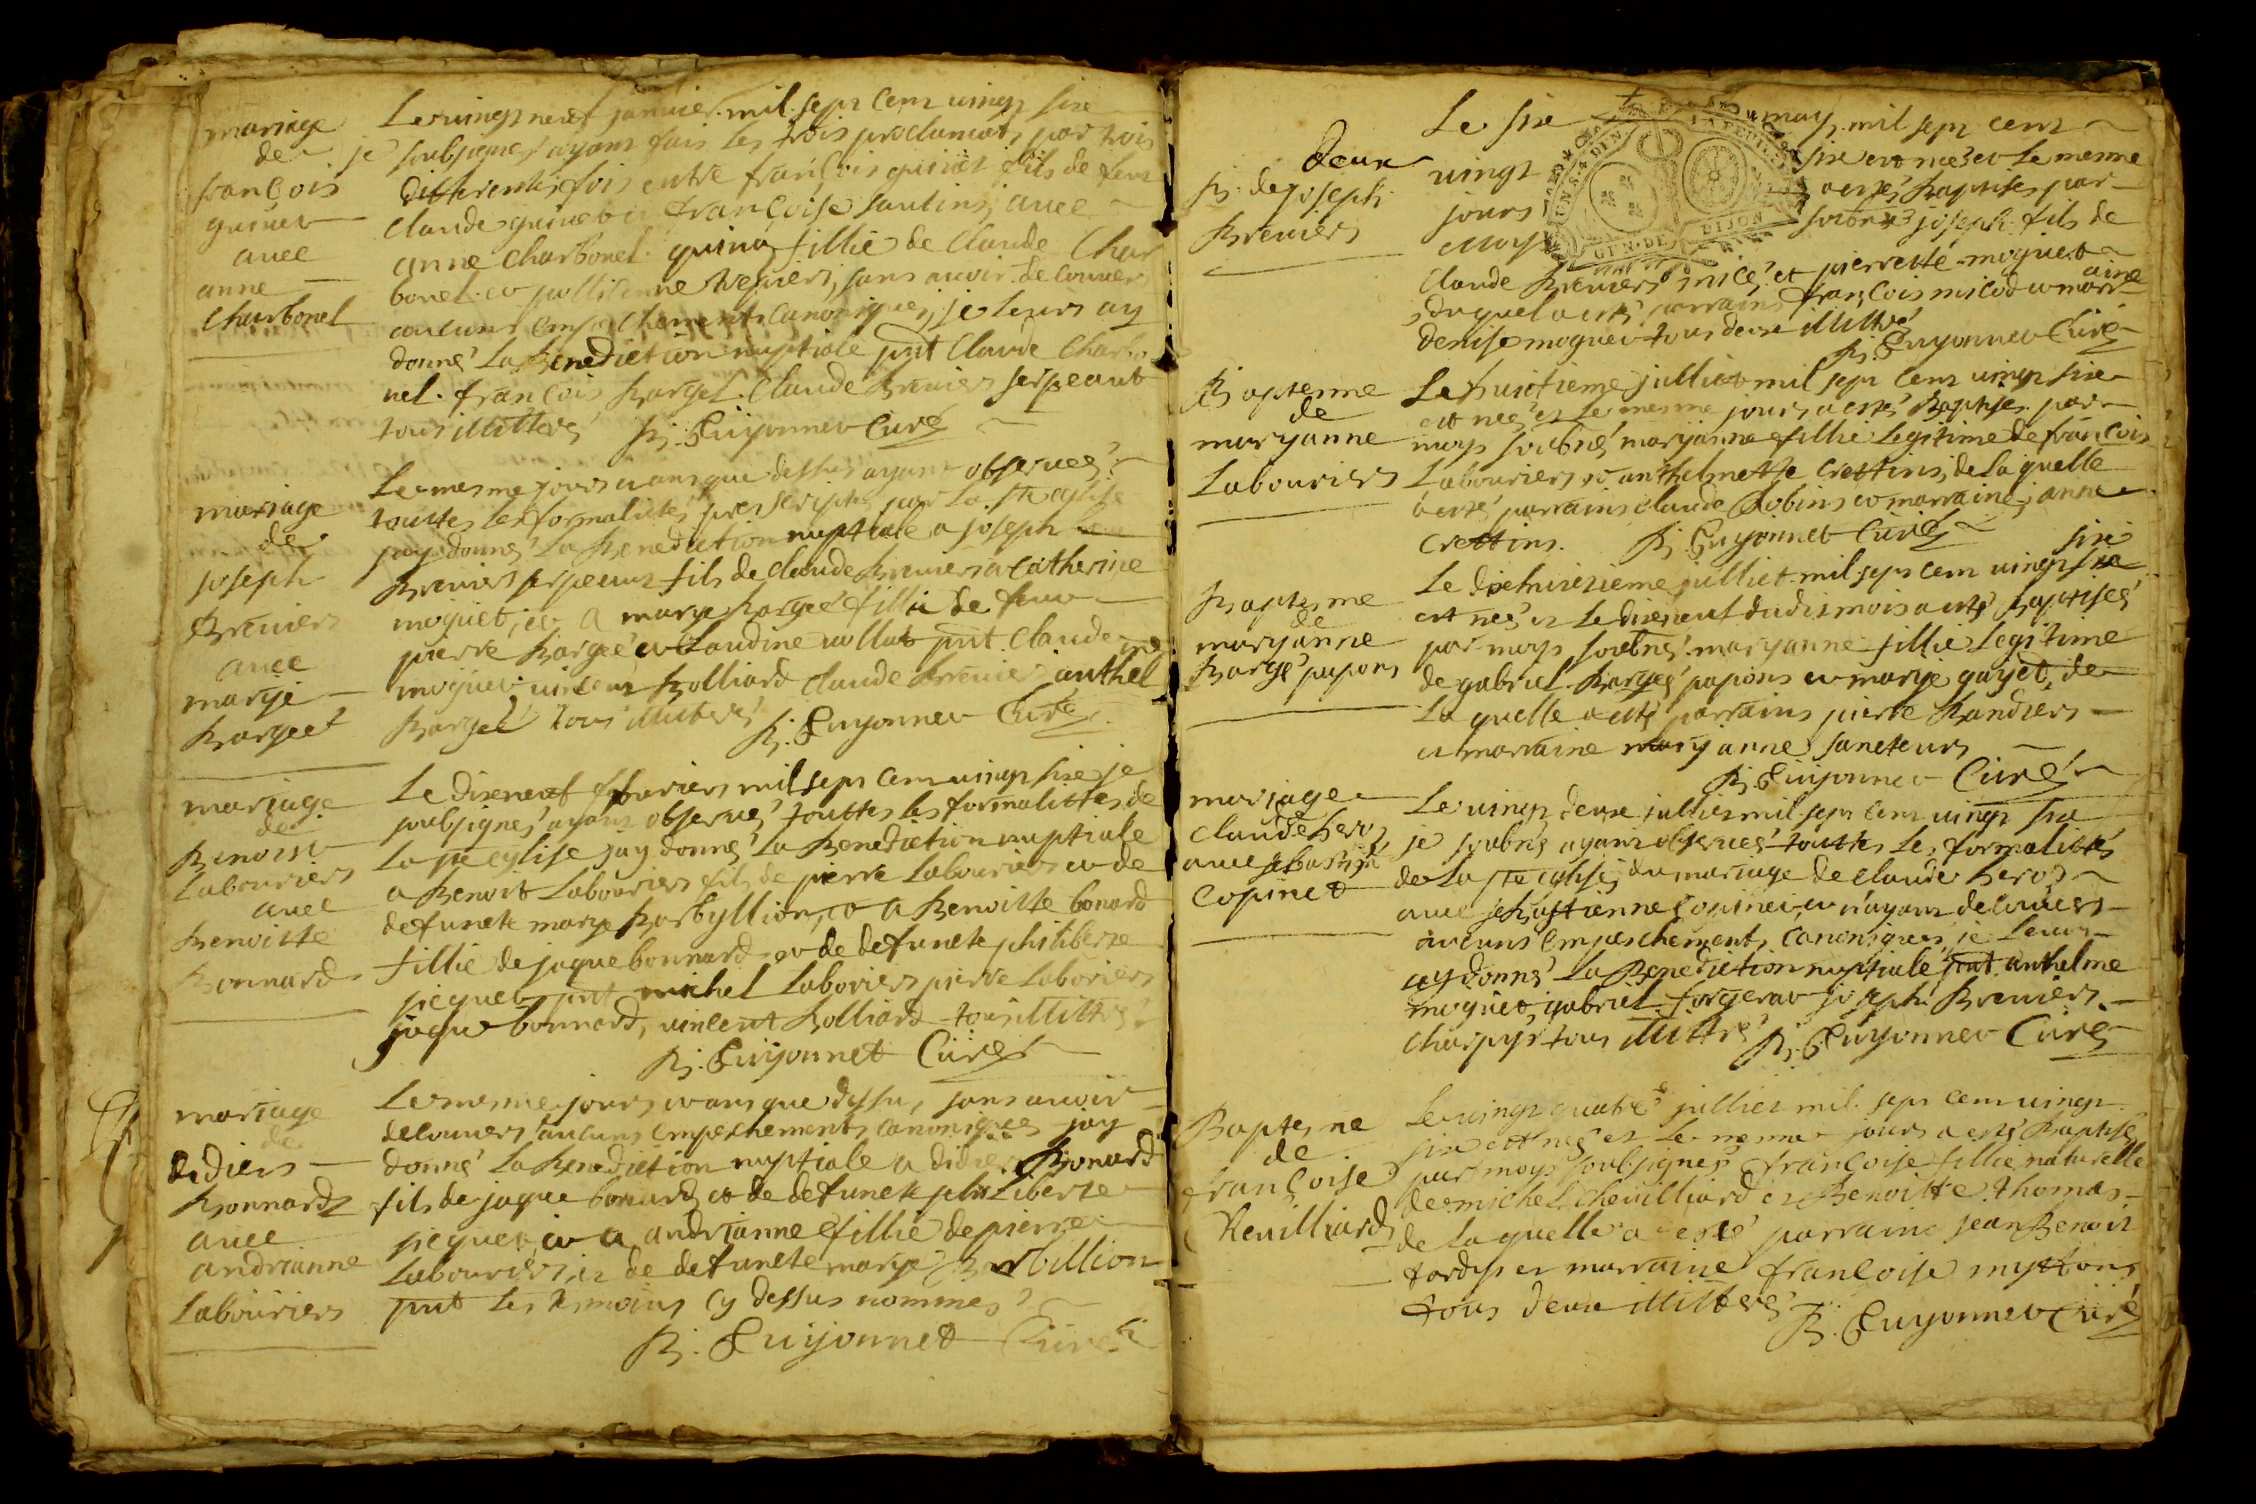 mariage
de
françois
guinet
avec
anne
charbonel
Le vingt neuf janvier mil sept cent vingt six
je soubsignez ayant fait les trois proclamats par trois
differentes fois entre françois guinet fils de feu
claude guinet et françoise sautins, avec
anne charbonel fillie de claude char
bonel et sans avoir decouvers
aucuns empeschements canoniques, je leurs ay
donné la Benediction nuptiale pnt claude charbo
nel. françois Bargel. claude Breviers serpeaut
tous illitterés B: Guyonnet Curé
mariage
de
joseph
Breviers
avec
marje
Bargeé
Le mesme jours et ans que dessus ayant observeé
touttes les formalités prescriptes par la ste eglise
jay donné la Benediction nuptiale a joseph
Breviers serpeaut fils de claude Breviers et catherine
moguet, et a marje Bargeé fillie de feuv
pierre Bargeé et claudine vollat pnt. claude
moguet vincent Bolliard claude Brevier anthelme
Bargeé tous illiterés B: Guyonnet Curé
mariage
de
Benoist
Labouriers
avec
Benoitte
Bonnard
Le diseneuf fevriers mil sept cent vingt six je
soubsignés ayant observeé touttes les formalittes de
la ste eglise jay donné la Benediction nuptiale
a Benoit Labouriers fils de pierre Labouriers et de
defuncte marje Barbyllion, et a Benoitte bonard
fillie de jaque bonnard et de defuncte philiberte
piequet, pnt michel Laboriers pierre Laboriers
jaque bonnard, vincent Bolliard tous illittré
B: Guyonnet Curé
mariage
de
didiers
Bonnard
avec
andrianne
Labouriers
Le mesme jours et ans que dessu, sans avoir
decouvers aucuns empeschements canoniques jay
donné la Benediction nuptiale a didier Bonard
fils de jaque bonard et de defuncte philiberte
piequet, et a andrianne fillie de pierre
Labouriers, et de defuncte marje Barbillion
pnt les tesmoins cy dessus nommés
B: Guyonnet Curé
B: de joseph
Breviers
Le six may mil sept cent
deux
vingt six est neé et le mesme
jours a esté Baptisés par
moy soubné joseph fils de
claude Breviers et pierrette moguet
duquel a esté parrains françois micod et marraine
denise moguet tous deux illittré
B: Guyonnet Curé
Baptesme
de
maryanne
Labouriers
Le huictieme julliet mil sept cent vingt six
est neé et le mesme jours a esté Baptisés par
moy soubné maryanne fillie legitime de françois
Labouriers et anthelmette crettins, de la quelle
a esté parrains claude Robins et marraine anne
crettins. B: Guyonnet Curé
Baptesme
de
maryanne
Bargé papons
six
Le diethuictieme julliet mil sept cent vingt six
est neé et le diseneuf dudit mois a esté Baptiseé
par moy soubné maryanne fillie legitime
de gabriel Bargeé papons et marje gayet, de
la quelle a esté parrains pierre Bandiers
et marraine maryanne sancteurs
B: Guyonnet Curé
mariage
de
claude beros
avec sebastiene
copinet
Le vingt deux julliet mil sept cent vingt six
je soubné ayant observeé touttes les formalités
de la ste eglise, du mariage de claude beros
avec sebastienne copinet, et n'ayant decouvers
aucuns empeschements canoniques, je leurs
ay donné la Benediction nuptiale pnt anthelme
moguet, gabriel forgerat joseph Breviers
charpys tous illittré B: Guyonnet Curé
Baptesme
de
françoise
Revilliard
Le vingt quatre julliet mil sept cent vingt
six est neé et le mesme jours a esté Baptisé
par moy soubsignés françoise fillie naturelle
de michel chevilliard et Benoitte thomas
de la quelle a esté parrains jean Benoit
tardys et marraine françoise myttons
tous deux illitterés B: Guyonnet Curé
GEN. DE DIJON